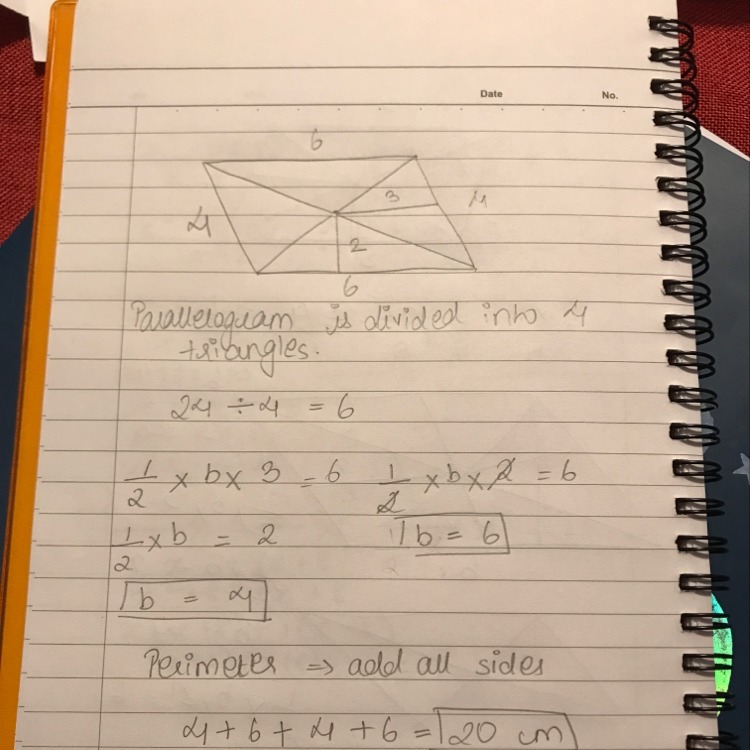 Date No.
6
3
4 4
2
6
Parallelogram is divided into 4
triangles.
24 ÷ 4 = 6
1/2 × b × 3 = 6 1/2 × b × 2 = 6
1/2 × b = 2 b = 6
b = 4
Perimeter ⇒ add all sides
4 + 6 + 4 + 6 = 20 cm